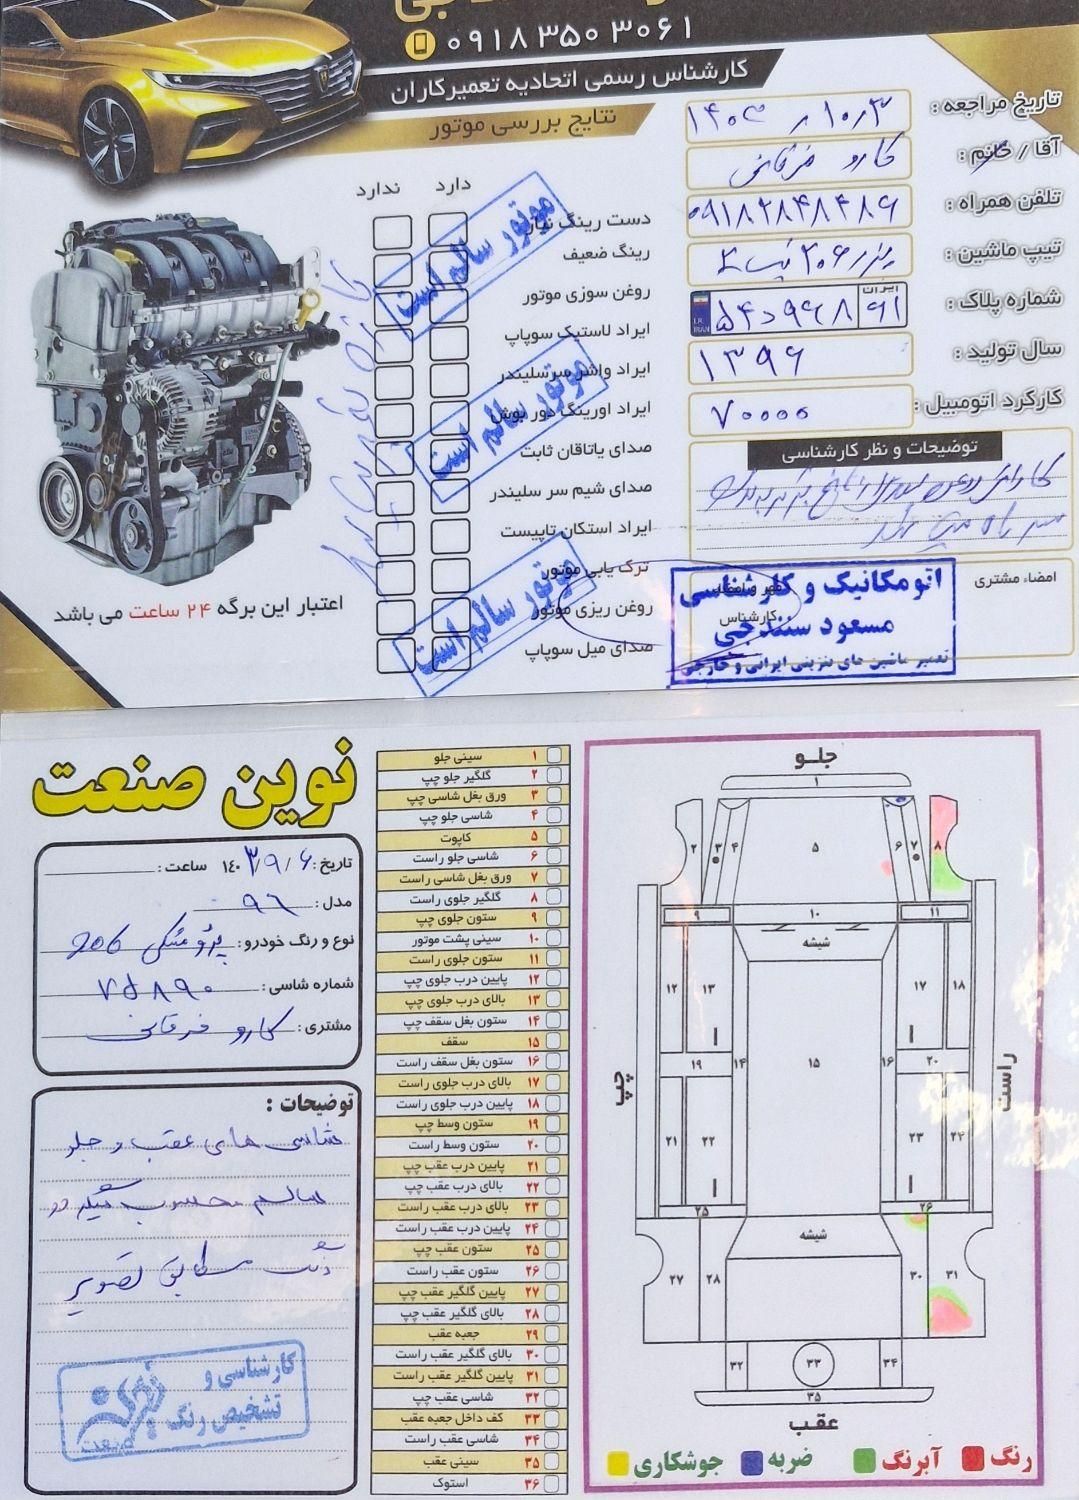 ۰۹۱۸ ۳۵۰ ۳۰۶۱
کارشناس رسمی اتحادیه تعمیرکاران
نتایج بررسی موتور
دارد
ندارد
دست رینگ نیاز
رینگ ضعیف
روغن سوزی موتور
ایراد لاستیک سوپاپ
ایراد واشر سرسلیندر
ایراد اورینگ دور بوش
صدای یاتاقان ثابت
صدای شیم سر سلیندر
ایراد استکان تایپیت
ترک یابی موتور
روغن ریزی موتور
صدای میل سوپاپ
موتور سالم است
موتور سالم است
موتور سالم است
اعتبار این برگه ۲۴ ساعت می باشد
تاریخ مراجعه :
آقا / خانم : کارو فرقانی
تلفن همراه : ۰۹۱۸۲۸۴۸۴۸۶
تیپ ماشین : پژو ۲۰۶ تیپ ۲
شماره پلاک : ایران ۹۱ ۵۴ د ۹۶۸
I.R. IRAN
سال تولید : ۱۳۹۶
کارکرد اتومبیل : ۷۰۰۰۰
توضیحات و نظر کارشناسی
امضاء مشتری
مهر و امضاء
کارشناس
اتومکانیک و کارشناسی
مسعود سنندجی
تعمیر ماشین های بنزینی ایرانی و خارجی
نوین صنعت
تاریخ : ۱۴۰۳/۹/۶ ساعت :
مدل : ۹۶
نوع و رنگ خودرو : پژو مشکی 206
شماره شاسی : ۷۵۸۹۰
مشتری : کارو فرقانی
توضیحات :
شاسی های عقب و جلو
سالم محسوب میگردد
رنگ مطابق تصویر
کارشناسی و
تشخیص رنگ
نوین صنعت
۱ سینی جلو
۲ گلگیر جلو چپ
۳ ورق بغل شاسی چپ
۴ شاسی جلو چپ
۵ کاپوت
۶ شاسی جلو راست
۷ ورق بغل شاسی راست
۸ گلگیر جلوی راست
۹ ستون جلوی چپ
۱۰ سینی پشت موتور
۱۱ ستون جلوی راست
۱۲ پایین درب جلوی چپ
۱۳ بالای درب جلوی چپ
۱۴ ستون بغل سقف چپ
۱۵ سقف
۱۶ ستون بغل سقف راست
۱۷ بالای درب جلوی راست
۱۸ پایین درب جلوی راست
۱۹ ستون وسط چپ
۲۰ ستون وسط راست
۲۱ پایین درب عقب چپ
۲۲ بالای درب عقب چپ
۲۳ بالای درب عقب راست
۲۴ پایین درب عقب راست
۲۵ ستون عقب چپ
۲۶ ستون عقب راست
۲۷ پایین گلگیر عقب چپ
۲۸ بالای گلگیر عقب چپ
۲۹ جعبه عقب
۳۰ بالای گلگیر عقب راست
۳۱ پایین گلگیر عقب راست
۳۲ شاسی عقب چپ
۳۳ کف داخل جعبه عقب
۳۴ شاسی عقب راست
۳۵ سینی عقب
۳۶ استوک
جلو
۱
۲ ۳ ۴ ۵ ۶ ۷ ۸
۹ ۱۰ ۱۱
شیشه
۱۲ ۱۳ ۱۷ ۱۸
۱۹ ۱۴ ۱۵ ۱۶ ۲۰
چپ
راست
۲۱ ۲۲ ۲۳ ۲۴
۲۵ ۲۶
شیشه
۲۷ ۲۸ ۳۰ ۳۱
۳۲ ۳۳ ۳۴
۳۵
عقب
رنگ
آبرنگ
ضربه
جوشکاری